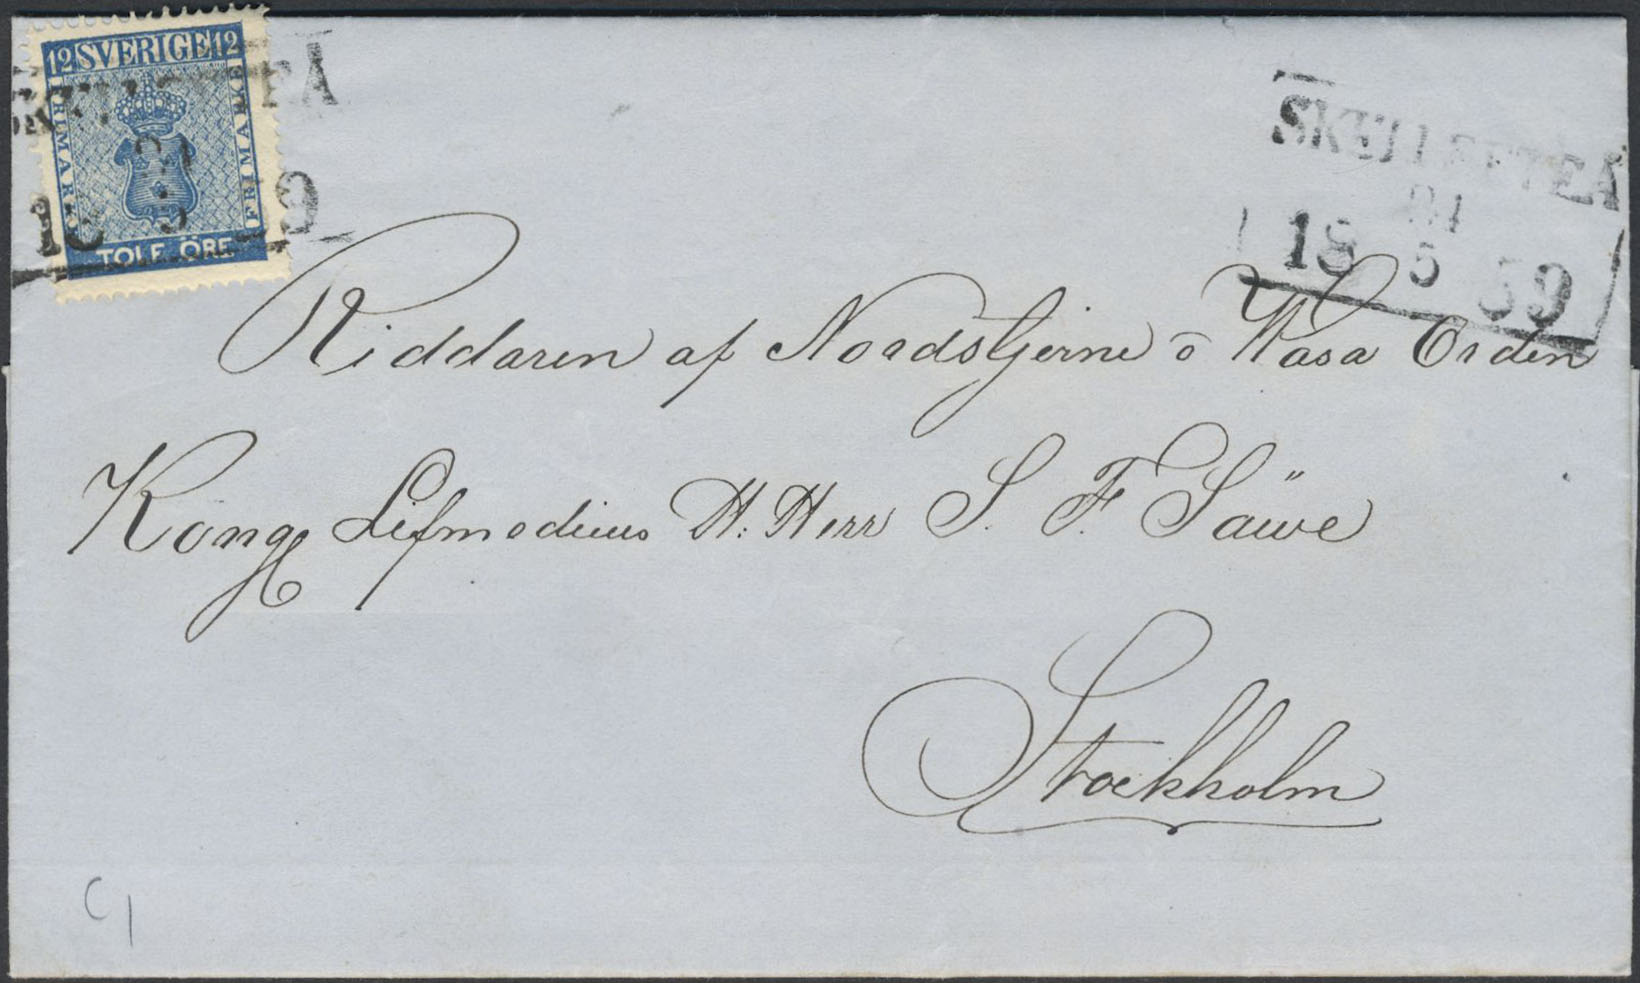 12 SVERIGE 12
FRIMÄRKE
FRIMÄRKE
TOLF ÖRE
SKELLEFTEÅ
18 5 59
Riddaren af Nordstjerne o Wasa Orden
Kongl Lifmedicus H. Herr S. F. Säwe
Stockholm